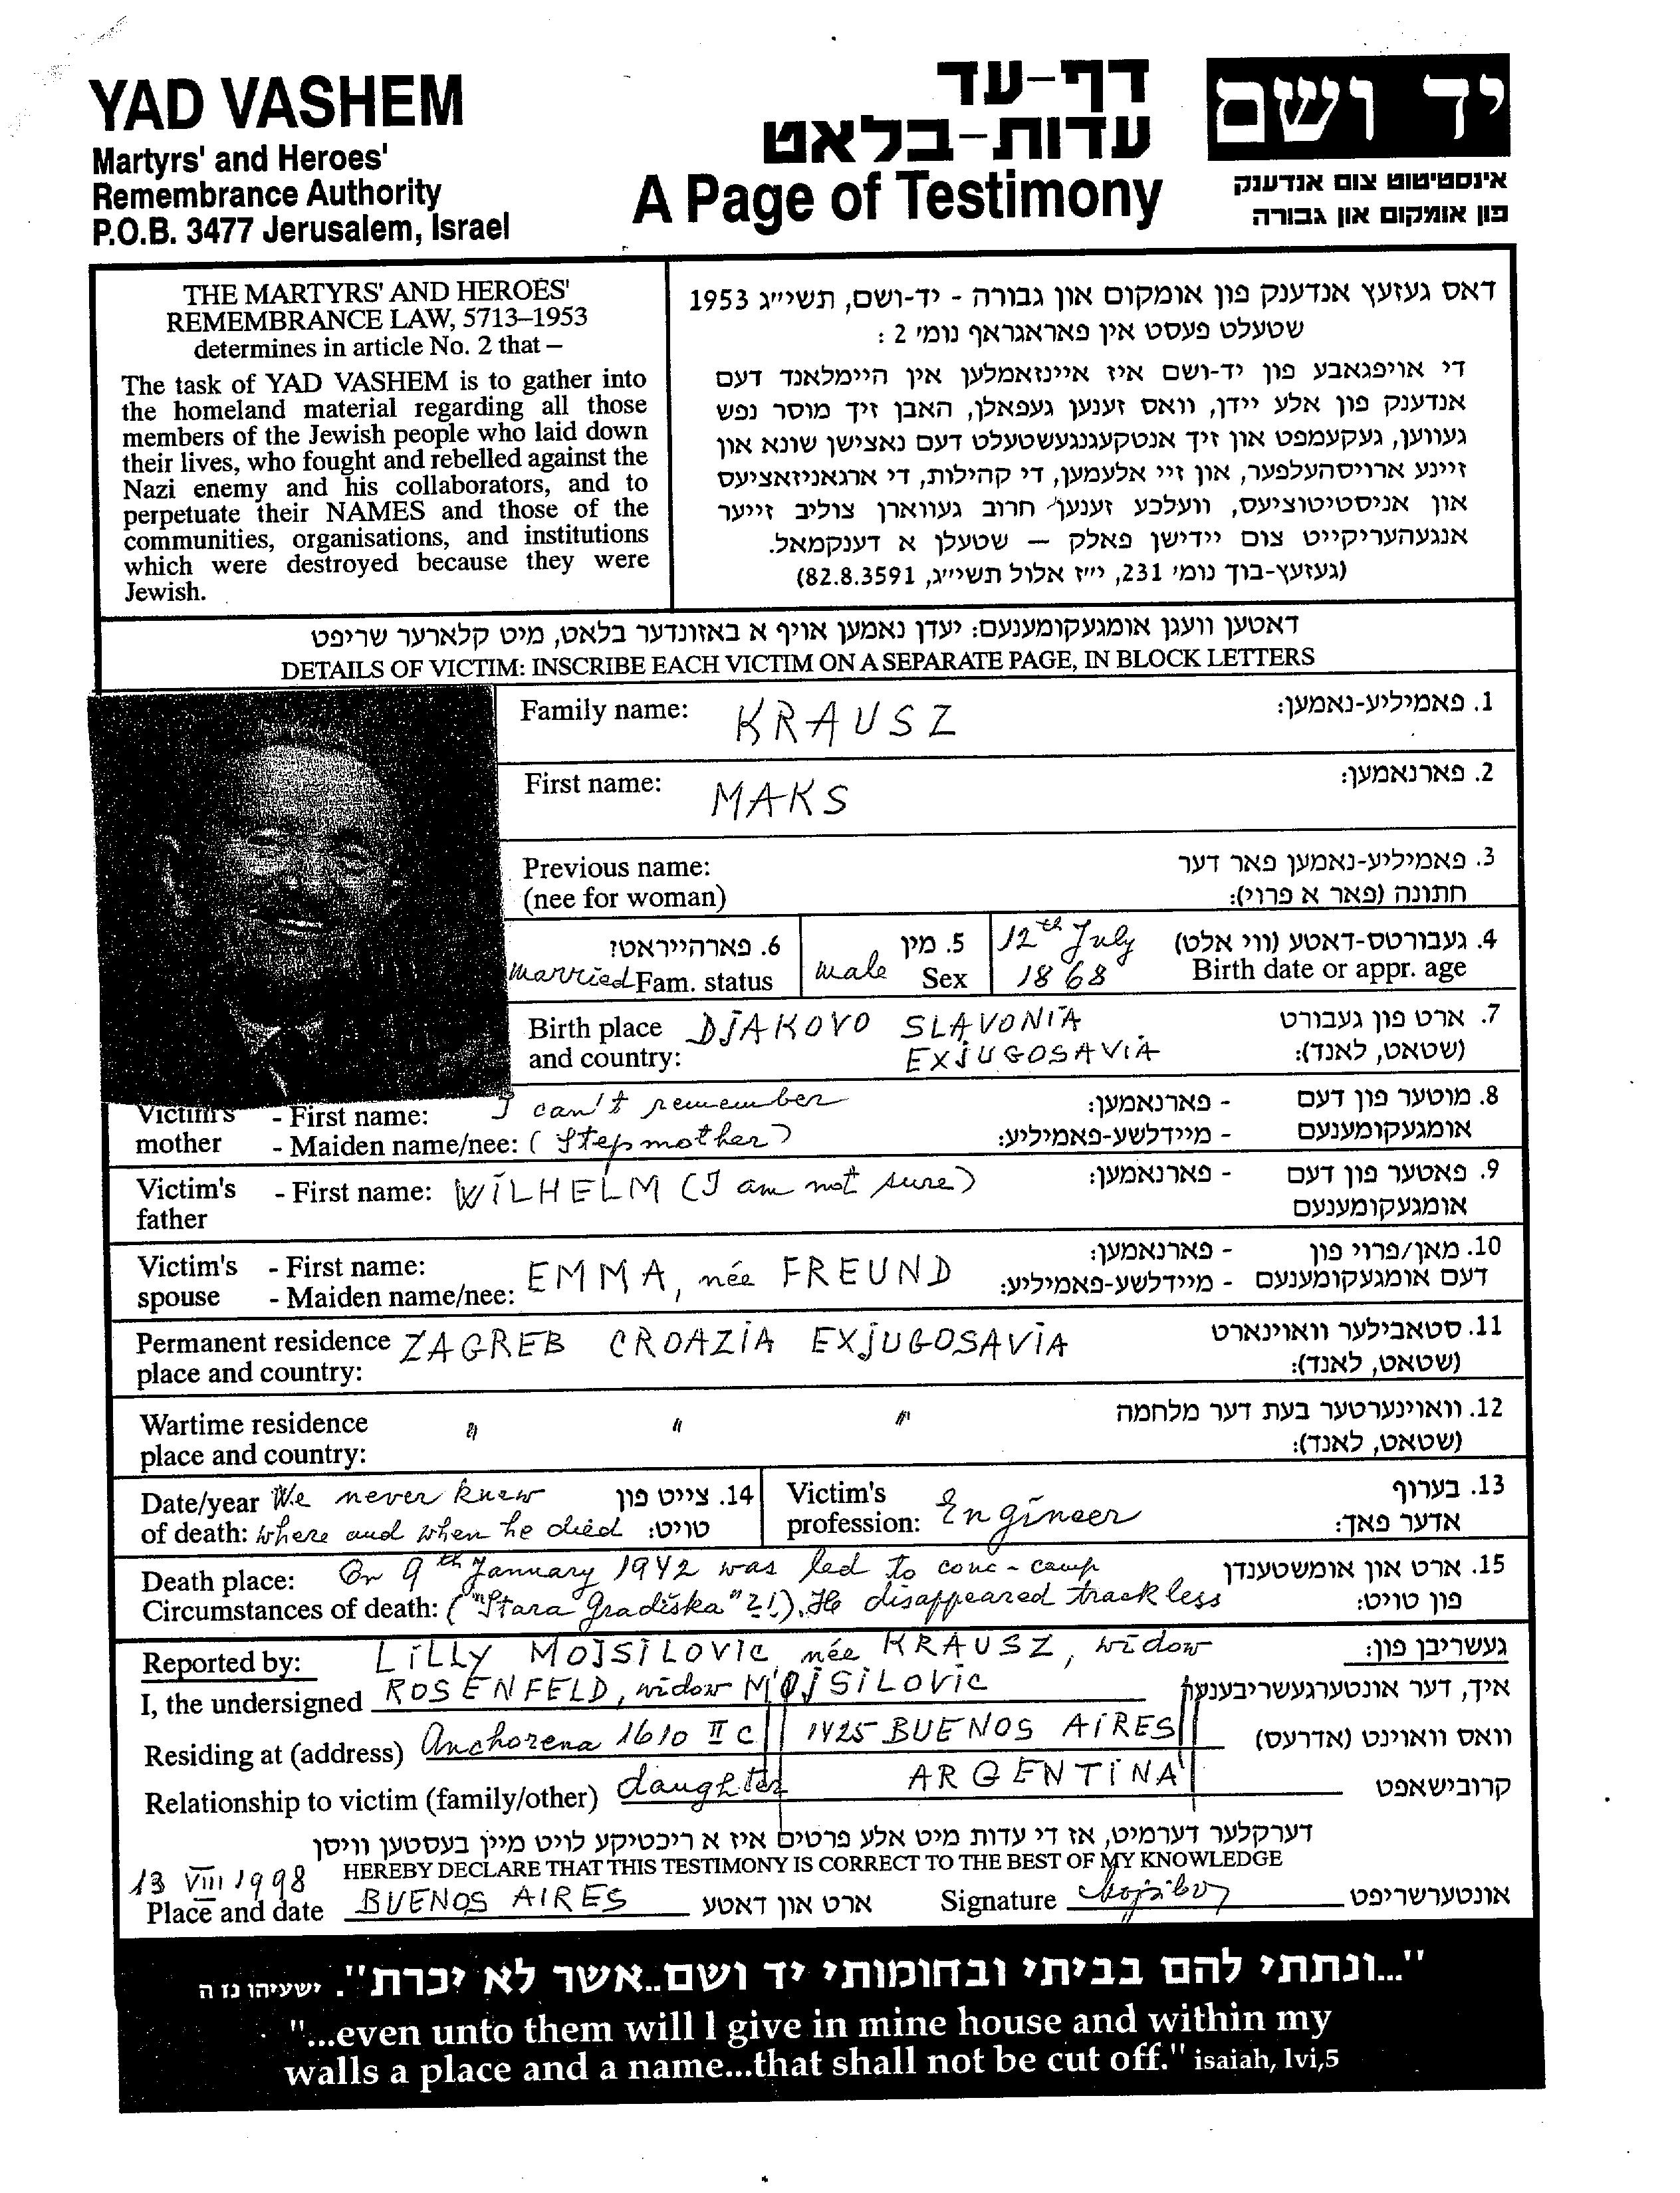 YAD VASHEM
Martyrs' and Heroes'
Remembrance Authority
P.O.B. 3477 Jerusalem, Israel
דף-עד
עדות-בלאט
A Page of Testimony
יד ושם
אינסטיטוט צום אנדענק
פון אומקום און גבורה
THE MARTYRS' AND HEROES'
REMEMBRANCE LAW, 5713–1953
determines in article No. 2 that –
The task of YAD VASHEM is to gather into
the homeland material regarding all those
members of the Jewish people who laid down
their lives, who fought and rebelled against the
Nazi enemy and his collaborators, and to
perpetuate their NAMES and those of the
communities, organisations, and institutions
which were destroyed because they were
Jewish.
דאס געזעץ אנדענק פון אומקום און גבורה - יד-ושם, תשי״ג 1953
שטעלט פעסט אין פאראגראף נומ׳ 2 :
די אויפגאבע פון יד-ושם איז איינזאמלען אין היימלאנד דעם
אנדענק פון אלע יידן, וואס זענען געפאלן, האבן זיך מוסר נפש
געווען, געקעמפט און זיך אנטקעגנגעשטעלט דעם נאצישן שונא און
זיינע ארויסהעלפער, און זיי אלעמען, די קהילות, די ארגאניזאציעס
און אניסטיטוציעס, וועלכע זענען חרוב געווארן צוליב זייער
אנגעהעריקייט צום יידישן פאלק — שטעלן א דענקמאל.
(געזעץ-בוך נומ׳ 231, י״ז אלול תשי״ג, 82.8.3591)
דאטען וועגן אומגעקומענעם: יעדן נאמען אויף א באזונדער בלאט, מיט קלארער שריפט
DETAILS OF VICTIM: INSCRIBE EACH VICTIM ON A SEPARATE PAGE, IN BLOCK LETTERS
Family name: KRAUSZ 1. פאמיליע-נאמען:
First name: MAKS 2. פארנאמען:
Previous name: 3. פאמיליע-נאמען פאר דער
(nee for woman) חתונה (פאר א פרוי):
6. פארהייראט? 5. מין 12th July 4. געבורטס-דאטע (ווי אלט)
married Fam. status male Sex 1868 Birth date or appr. age
Birth place DJAKOVO SLAVONIA 7. ארט פון געבורט
and country: EXJUGOSAVIA (שטאט, לאנד):
Victim's - First name: I can't remember - פארנאמען: 8. מוטער פון דעם
mother - Maiden name/nee: (Stepmother) - מיידלשע-פאמיליע: אומגעקומענעם
Victim's - First name: WILHELM (I am not sure) - פארנאמען: 9. פאטער פון דעם
father אומגעקומענעם
Victim's - First name: - פארנאמען: 10. מאן/פרוי פון
spouse - Maiden name/nee: EMMA, née FREUND - מיידלשע-פאמיליע: דעם אומגעקומענעם
Permanent residence ZAGREB CROAZIA EXJUGOSAVIA 11. סטאבילער וואוינארט
place and country: (שטאט, לאנד):
Wartime residence " " " 12. וואוינערטער בעת דער מלחמה
place and country: (שטאט, לאנד):
Date/year We never knew 14. צייט פון Victim's 13. בערוף
of death: where and when he died טויט: profession: Engineer אדער פאך:
Death place: On 9th January 1942 was led to conc-camp 15. ארט און אומשטענדן
Circumstances of death: ("Stara Gradiška"?!). He disappeared trackless פון טויט:
Reported by: LILLY MOJSILOVIC née KRAUSZ, widow געשריבן פון:
I, the undersigned ROSENFELD, widow MOJSILOVIC איך, דער אונטערגעשריבענער
Residing at (address) Anchorena 1610 II C 1425 BUENOS AIRES וואס וואוינט (אדרעס)
Relationship to victim (family/other) daughter ARGENTINA קרובישאפט
דערקלער דערמיט, אז די עדות מיט אלע פרטים איז א ריכטיקע לויט מיין בעסטען וויסן
13 VIII 1998 HEREBY DECLARE THAT THIS TESTIMONY IS CORRECT TO THE BEST OF MY KNOWLEDGE
Place and date BUENOS AIRES ארט און דאטע Signature אונטערשריפט
"...ונתתי להם בביתי ובחומותי יד ושם..אשר לא יכרת". ישעיהו נו ה
"...even unto them will I give in mine house and within my
walls a place and a name...that shall not be cut off." isaiah, lvi,5